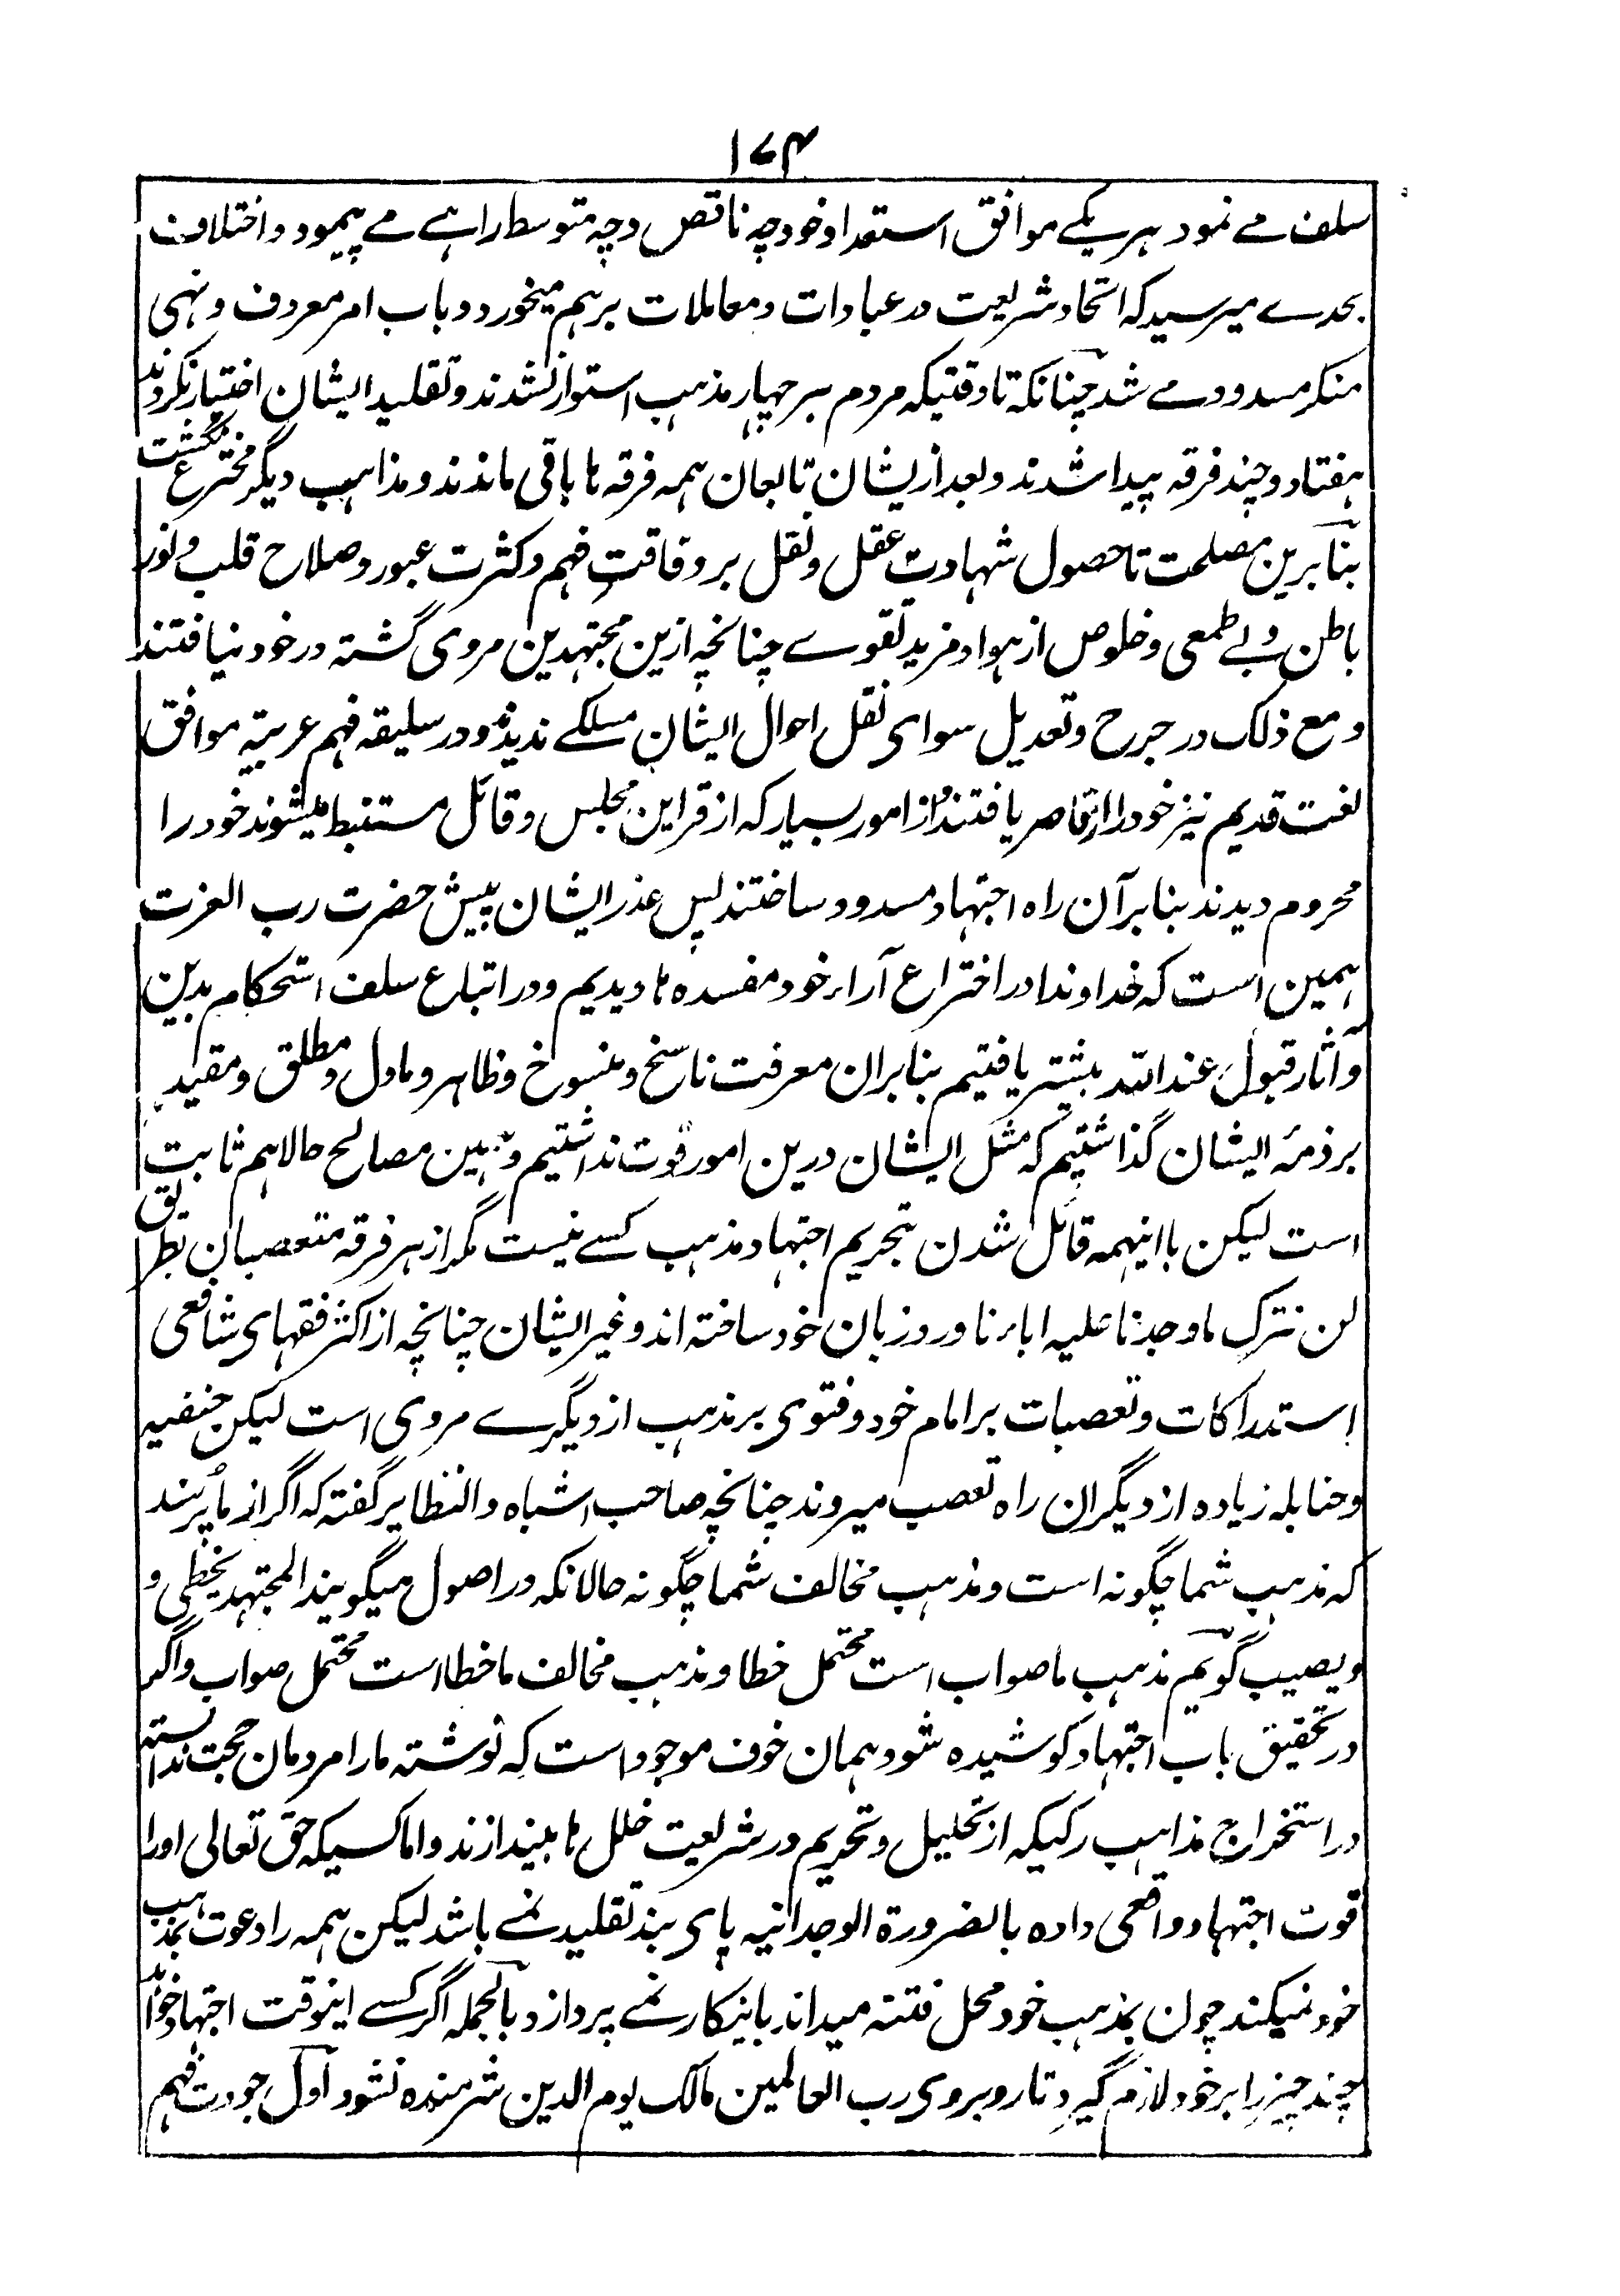 ۱۷۴
سلف مے نمود ہر یکے موافق استعداد خود چہ ناقص و چہ متوسط راہے مے پیمود و اختلاف
بحدے میرسید کہ اتحاد شریعت در عبادات و معاملات برہم میخورد و باب امر معروف و نہی
منکر مسدود مے شد چنانکہ تا وقتیکہ مردم بر چہار مذہب استوار نشدند و تقلید ایشان اختیار نکردند
ہفتاد و چند فرقہ پیدا شدند و بعد ازیشان تابعان ہمہ فرقہ ہا باقی ماندند و مذاہب دیگر مخترع نگشت
بنابرین مصلحت تا حصول شہادت عقل و نقل بر وفاقت فہم و کثرت عبور و صلاح قلب و نور
باطن و بے طمعی و خلوص از ہوا و مزید تقوے چنانچہ ازین مجتہدین مروی گشتہ در خود نیافتند
و مع ذلک در جرح و تعدیل سوای نقل احوال ایشان مسلکے ندیدند و در سلیقہ فہم عربیۃ موافق
لغت قدیم نیز خود را قاصر یافتند و از امور بسیار کہ از قراین مجلس و قائل مستنبط میشوند خود را
محروم دیدند بنابر آن راہ اجتہاد مسدود ساختند پس عذر ایشان پیش حضرت رب العزت
ہمین است کہ خداوندا در اختراع آراء خود مفسدہ ہا دیدیم و در اتباع سلف استحکام بدین
و آثار قبول عند اللہ بیشتر یافتیم بنابران معرفت ناسخ و منسوخ و ظاہر و ماول و مطلق و مقید
بر ذمۂ ایشان گذاشتیم کہ مثل ایشان درین امور قوت نداشتیم و ہمین مصالح حالا ہم ثابت
است لیکن با اینہمہ قائل شدن بتحریم اجتہاد مذہب کسے نیست مگر از ہر فرقہ متعصبان بطریق
لن نترک ما وجدنا علیہ اباءنا ورد زبان خود ساختہ اند و غیر ایشان چنانچہ از اکثر فقہای شافعی
استدراکات و تعصبات بر امام خود و فتوی بر مذہب از دیگرے مروی است لیکن حنفیہ
و حنابلہ زیادہ از دیگران راہ تعصب میروند چنانچہ صاحب اشباہ والنظایر گفتہ کہ اگر از ما پرسند
کہ مذہب شما چگونہ است و مذہب مخالف شما چگونہ حالانکہ در اصول میگویند المجتہد یخطی و
و یصیب گوئیم مذہب ما صواب است محتمل خطا و مذہب مخالف ما خطا است محتمل صواب و اگر
در تحقیق باب اجتہاد کوشیدہ شود ہمان خوف موجود است کہ نوشتہ ما را مردمان حجت دانستہ
در استخراج مذاہب رکیکہ از تحلیل و تحریم در شریعت خلل ہا بیندازند و اما کسیکہ حق تعالی او را
قوت اجتہاد واقعی دادہ بالضرورۃ الوجدانیہ پای بند تقلید نمے باشد لیکن ہمہ را دعوت بمذہب
خود نمیکند چون بمذہب خود محل فتنہ میداند باینکار نمے پردازد و بالجملہ اگر کسے اینوقت اجتہاد خواہد
چند چیز را بر خود لازم گیرد تا روبروی رب العالمین مالک یوم الدین شرمندہ نشود اول جودت فہم